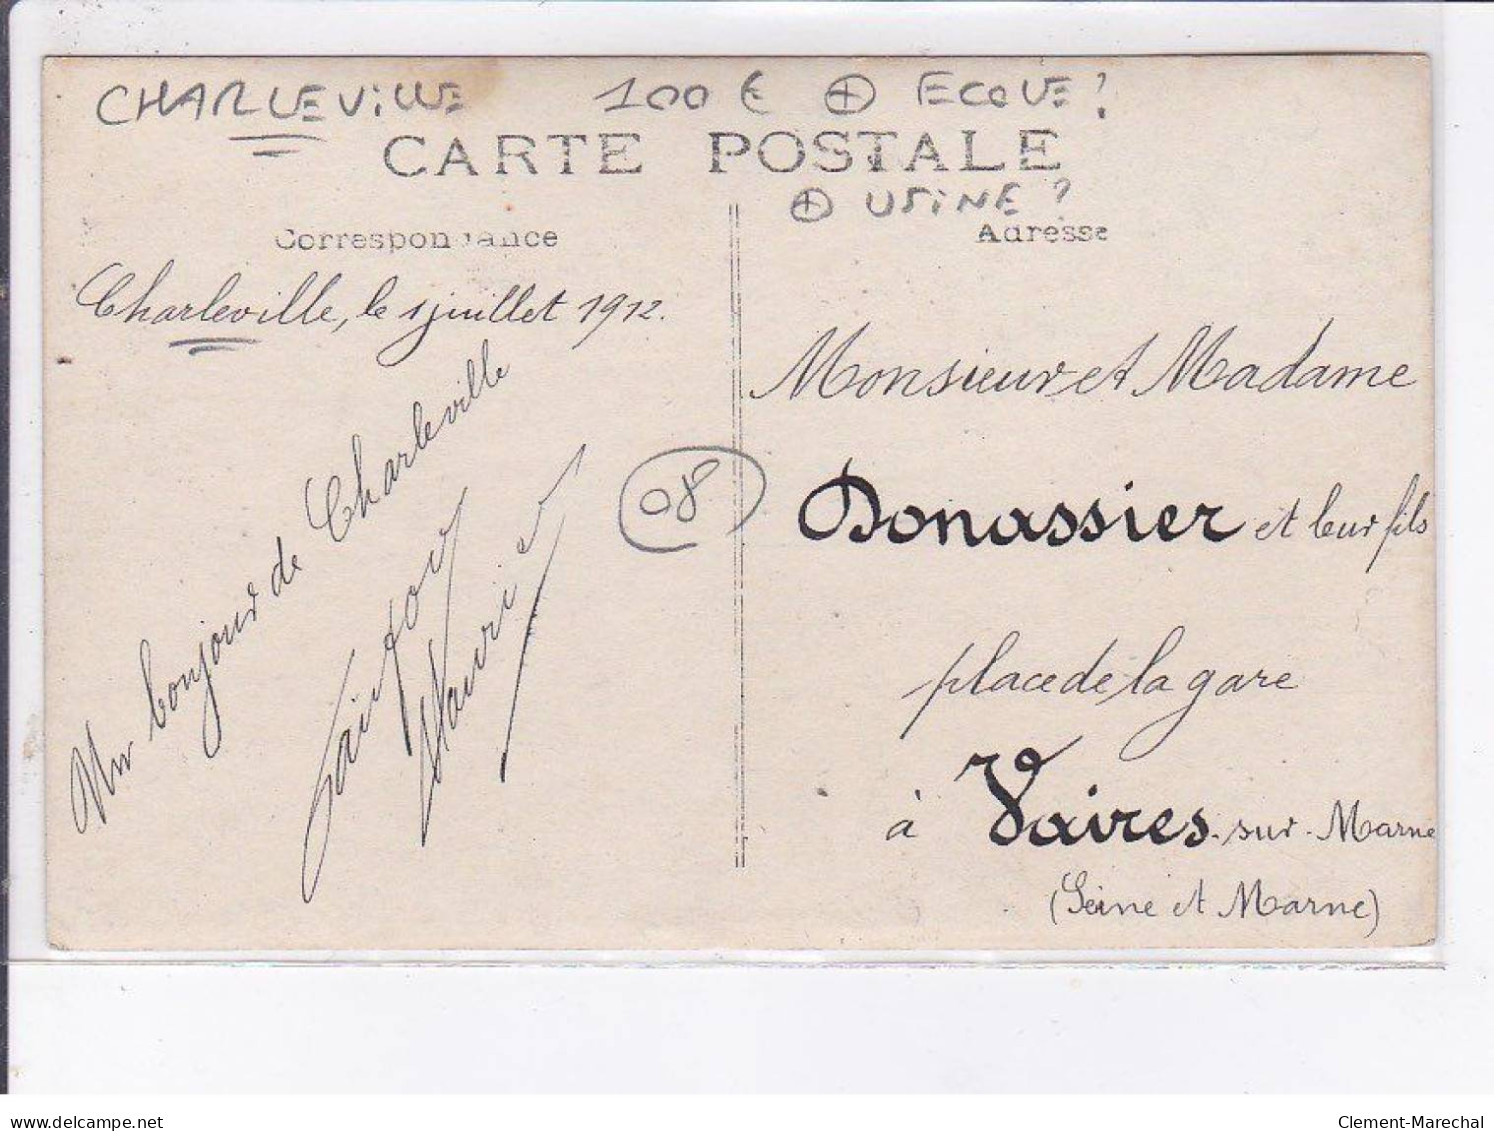 CHARLEVILLE 100 € ⊕ ECOLE ?
CARTE POSTALE
⊕ USINE ?
Correspondance
Adresse
Charleville, le 1 juillet 1912.
Un bonjour de Charleville
Maurice
08
Monsieur et Madame
Donassier et leur fils
place de la gare
à Vaires-sur-Marne
(Seine et Marne)
delcampe.net
Clement-Marechal